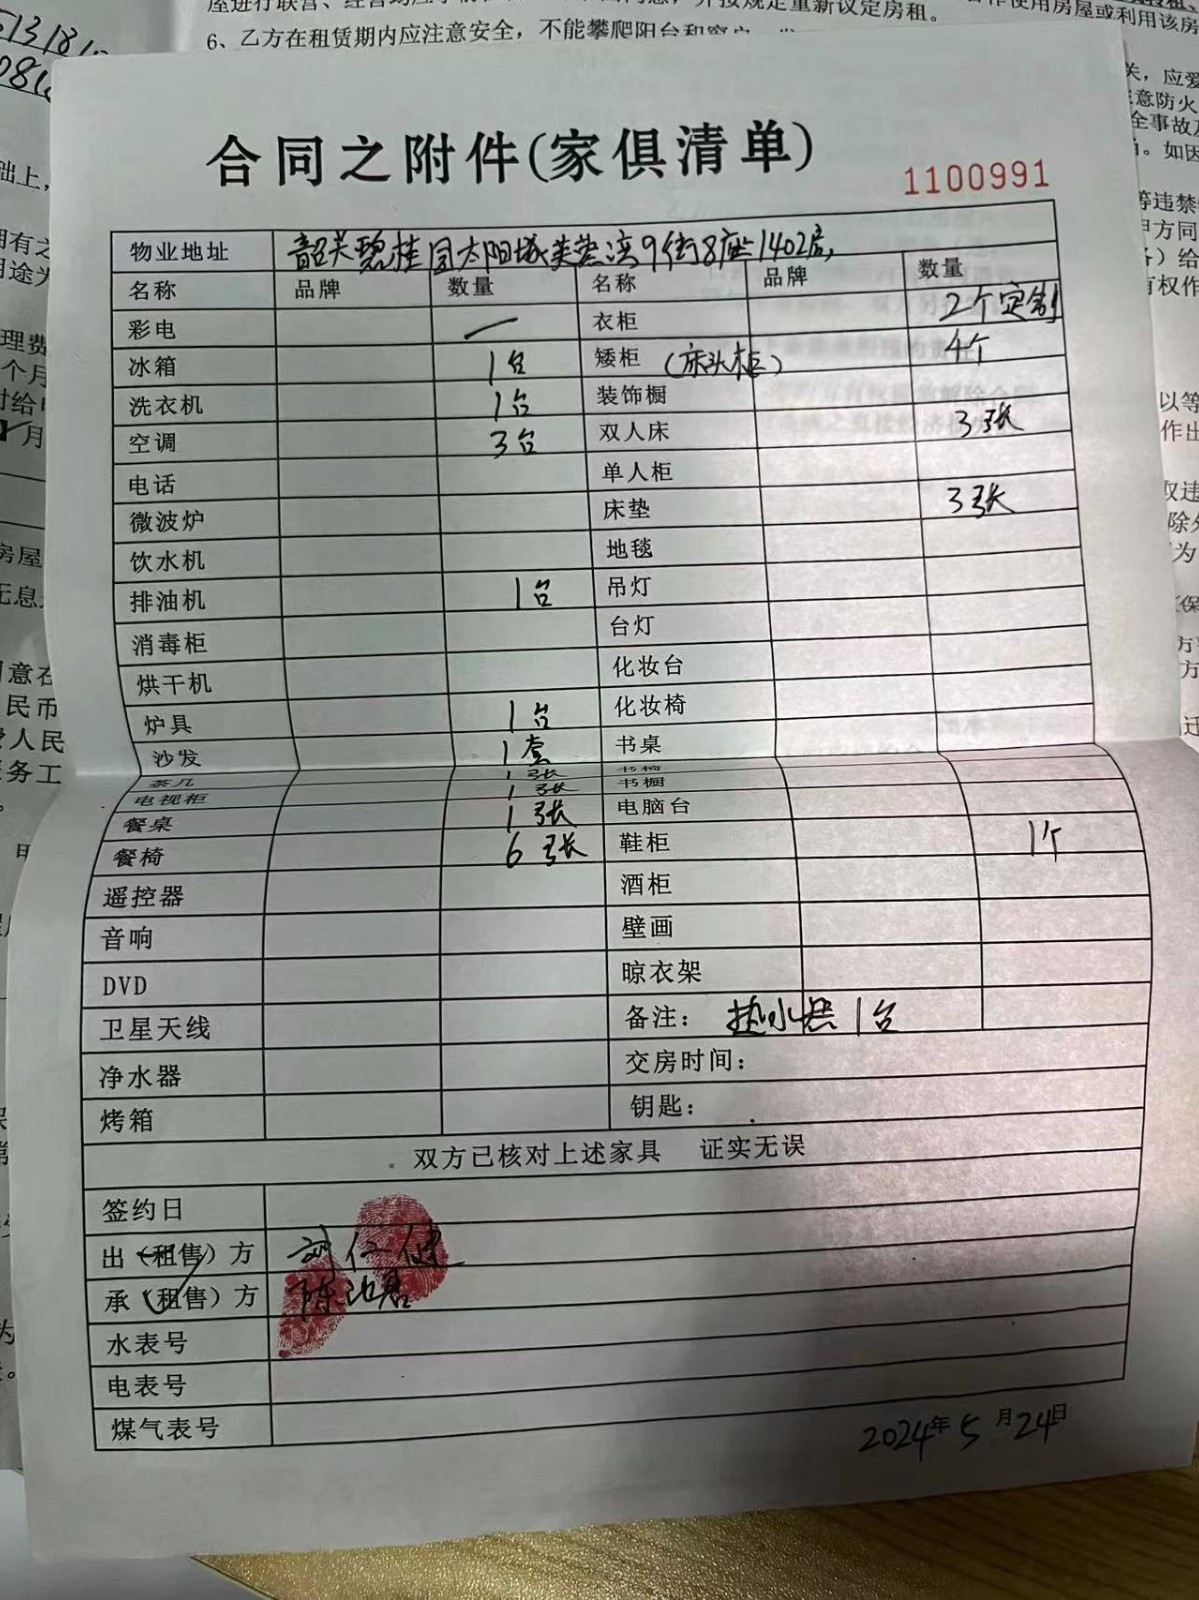 6、乙方在租赁期内应注意安全，不能攀爬阳台和窗户
合同之附件(家俱清单)
1100991
物业地址 韶关碧桂园太阳城芙蓉湾9街8座1402房
名称 品牌 数量 名称 品牌 数量
彩电 一 衣柜 2个定制
冰箱 1台 矮柜 (床头柜) 4个
洗衣机 1台 装饰橱
空调 3台 双人床 3张
电话 单人柜
微波炉 床垫 3张
饮水机 地毯
排油机 1台 吊灯
消毒柜 台灯
烘干机 化妆台
炉具 1台 化妆椅
沙发 1套 书桌
茶几 1张 书椅
电视柜 1张 书橱
餐桌 1张 电脑台
餐椅 6张 鞋柜 1个
遥控器 酒柜
音响 壁画
DVD 晾衣架
卫星天线 备注： 热水器1台
净水器 交房时间：
烤箱 钥匙：
双方已核对上述家具 证实无误
签约日
出（租售）方 刘仁健
承（租售）方 陈
水表号
电表号
煤气表号
2024年5月24日